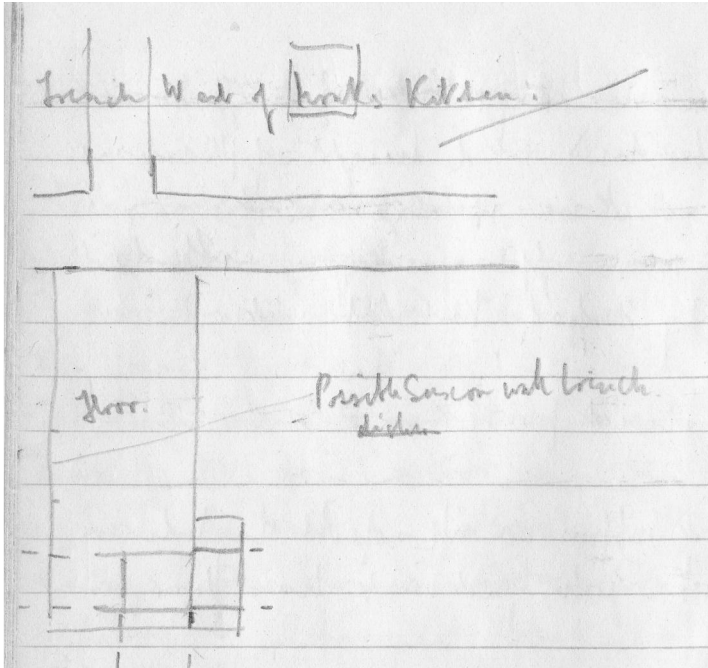 Trench West of Monks Kitchen.
Floor.
Possible Saxon wall trench